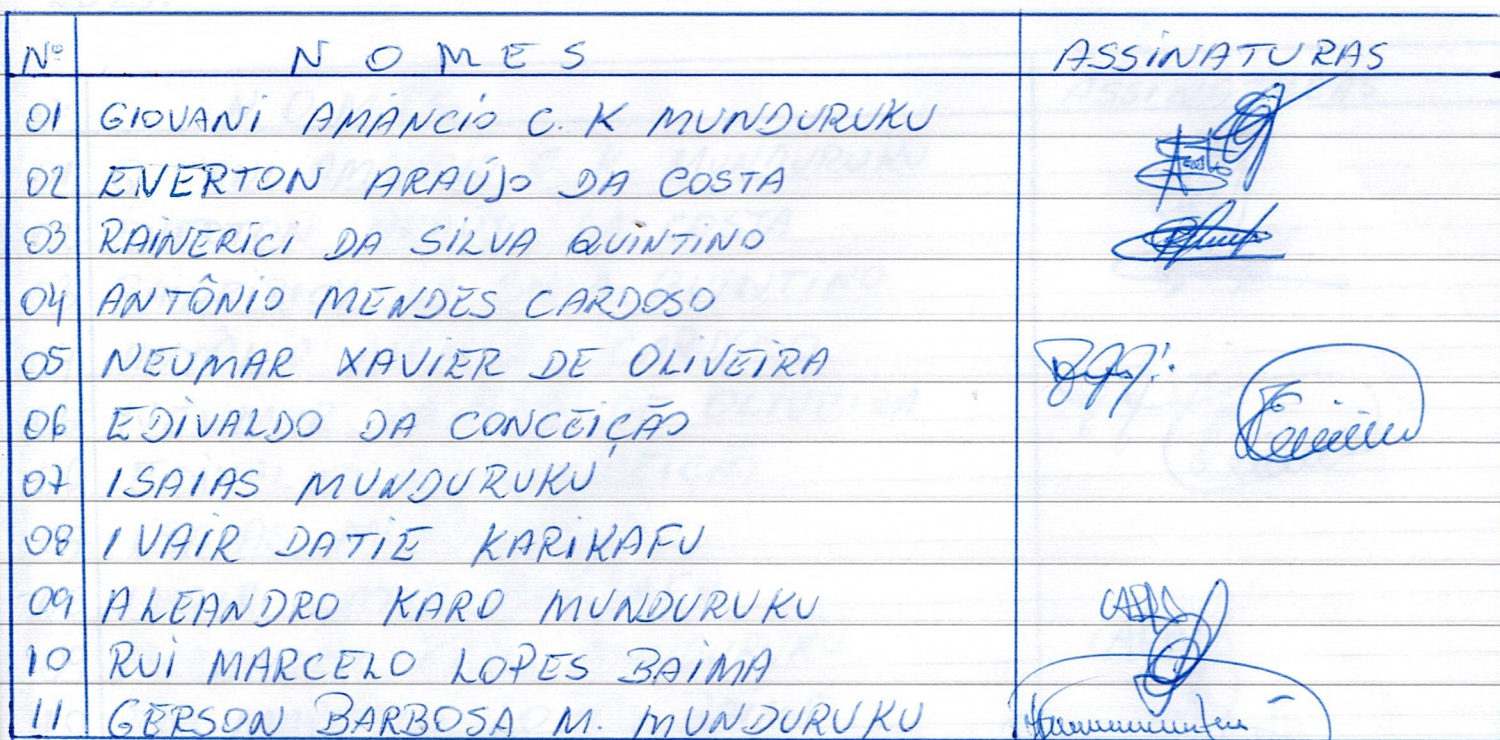 Nº NOMES ASSINATURAS
01 GIOVANI AMÂNCIO C. K MUNDURUKU
02 EVERTON ARAÚJO DA COSTA
03 RAINERICI DA SILVA QUINTINO
04 ANTÔNIO MENDES CARDOSO
05 NEUMAR XAVIER DE OLIVEIRA
06 EDIVALDO DA CONCEIÇÃO
07 ISAIAS MUNDURUKU
08 IVAIR DATIE KARIKAFU
09 ALEANDRO KARO MUNDURUKU
10 RUI MARCELO LOPES BAIMA
11 GERSON BARBOSA M. MUNDURUKU